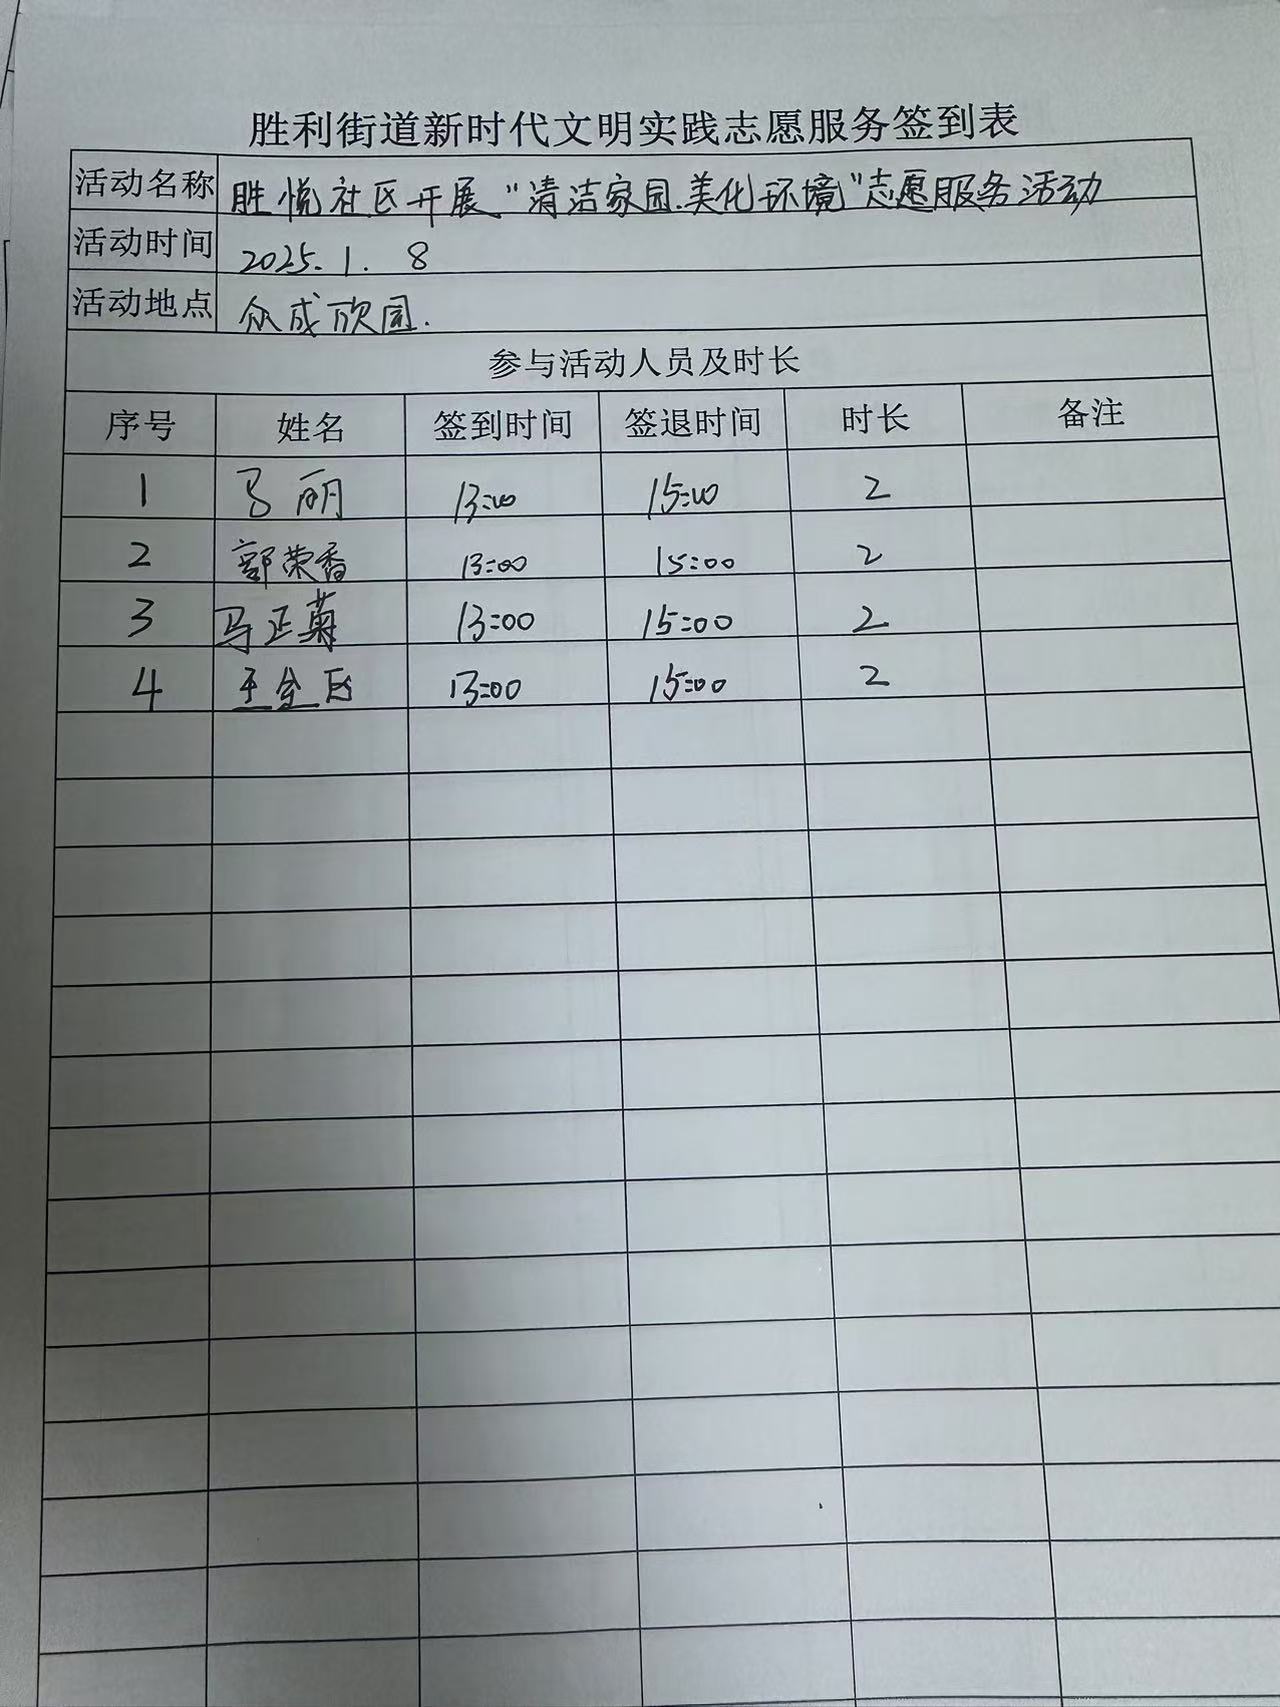 胜利街道新时代文明实践志愿服务签到表
活动名称 胜悦社区开展“清洁家园.美化环境”志愿服务活动
活动时间 2025.1.8
活动地点 众成欣园.
参与活动人员及时长
序号 姓名 签到时间 签退时间 时长 备注
1 马丽 13:00 15:00 2
2 郭荣香 13:00 15:00 2
3 马正菊 13:00 15:00 2
4 王全 13:00 15:00 2